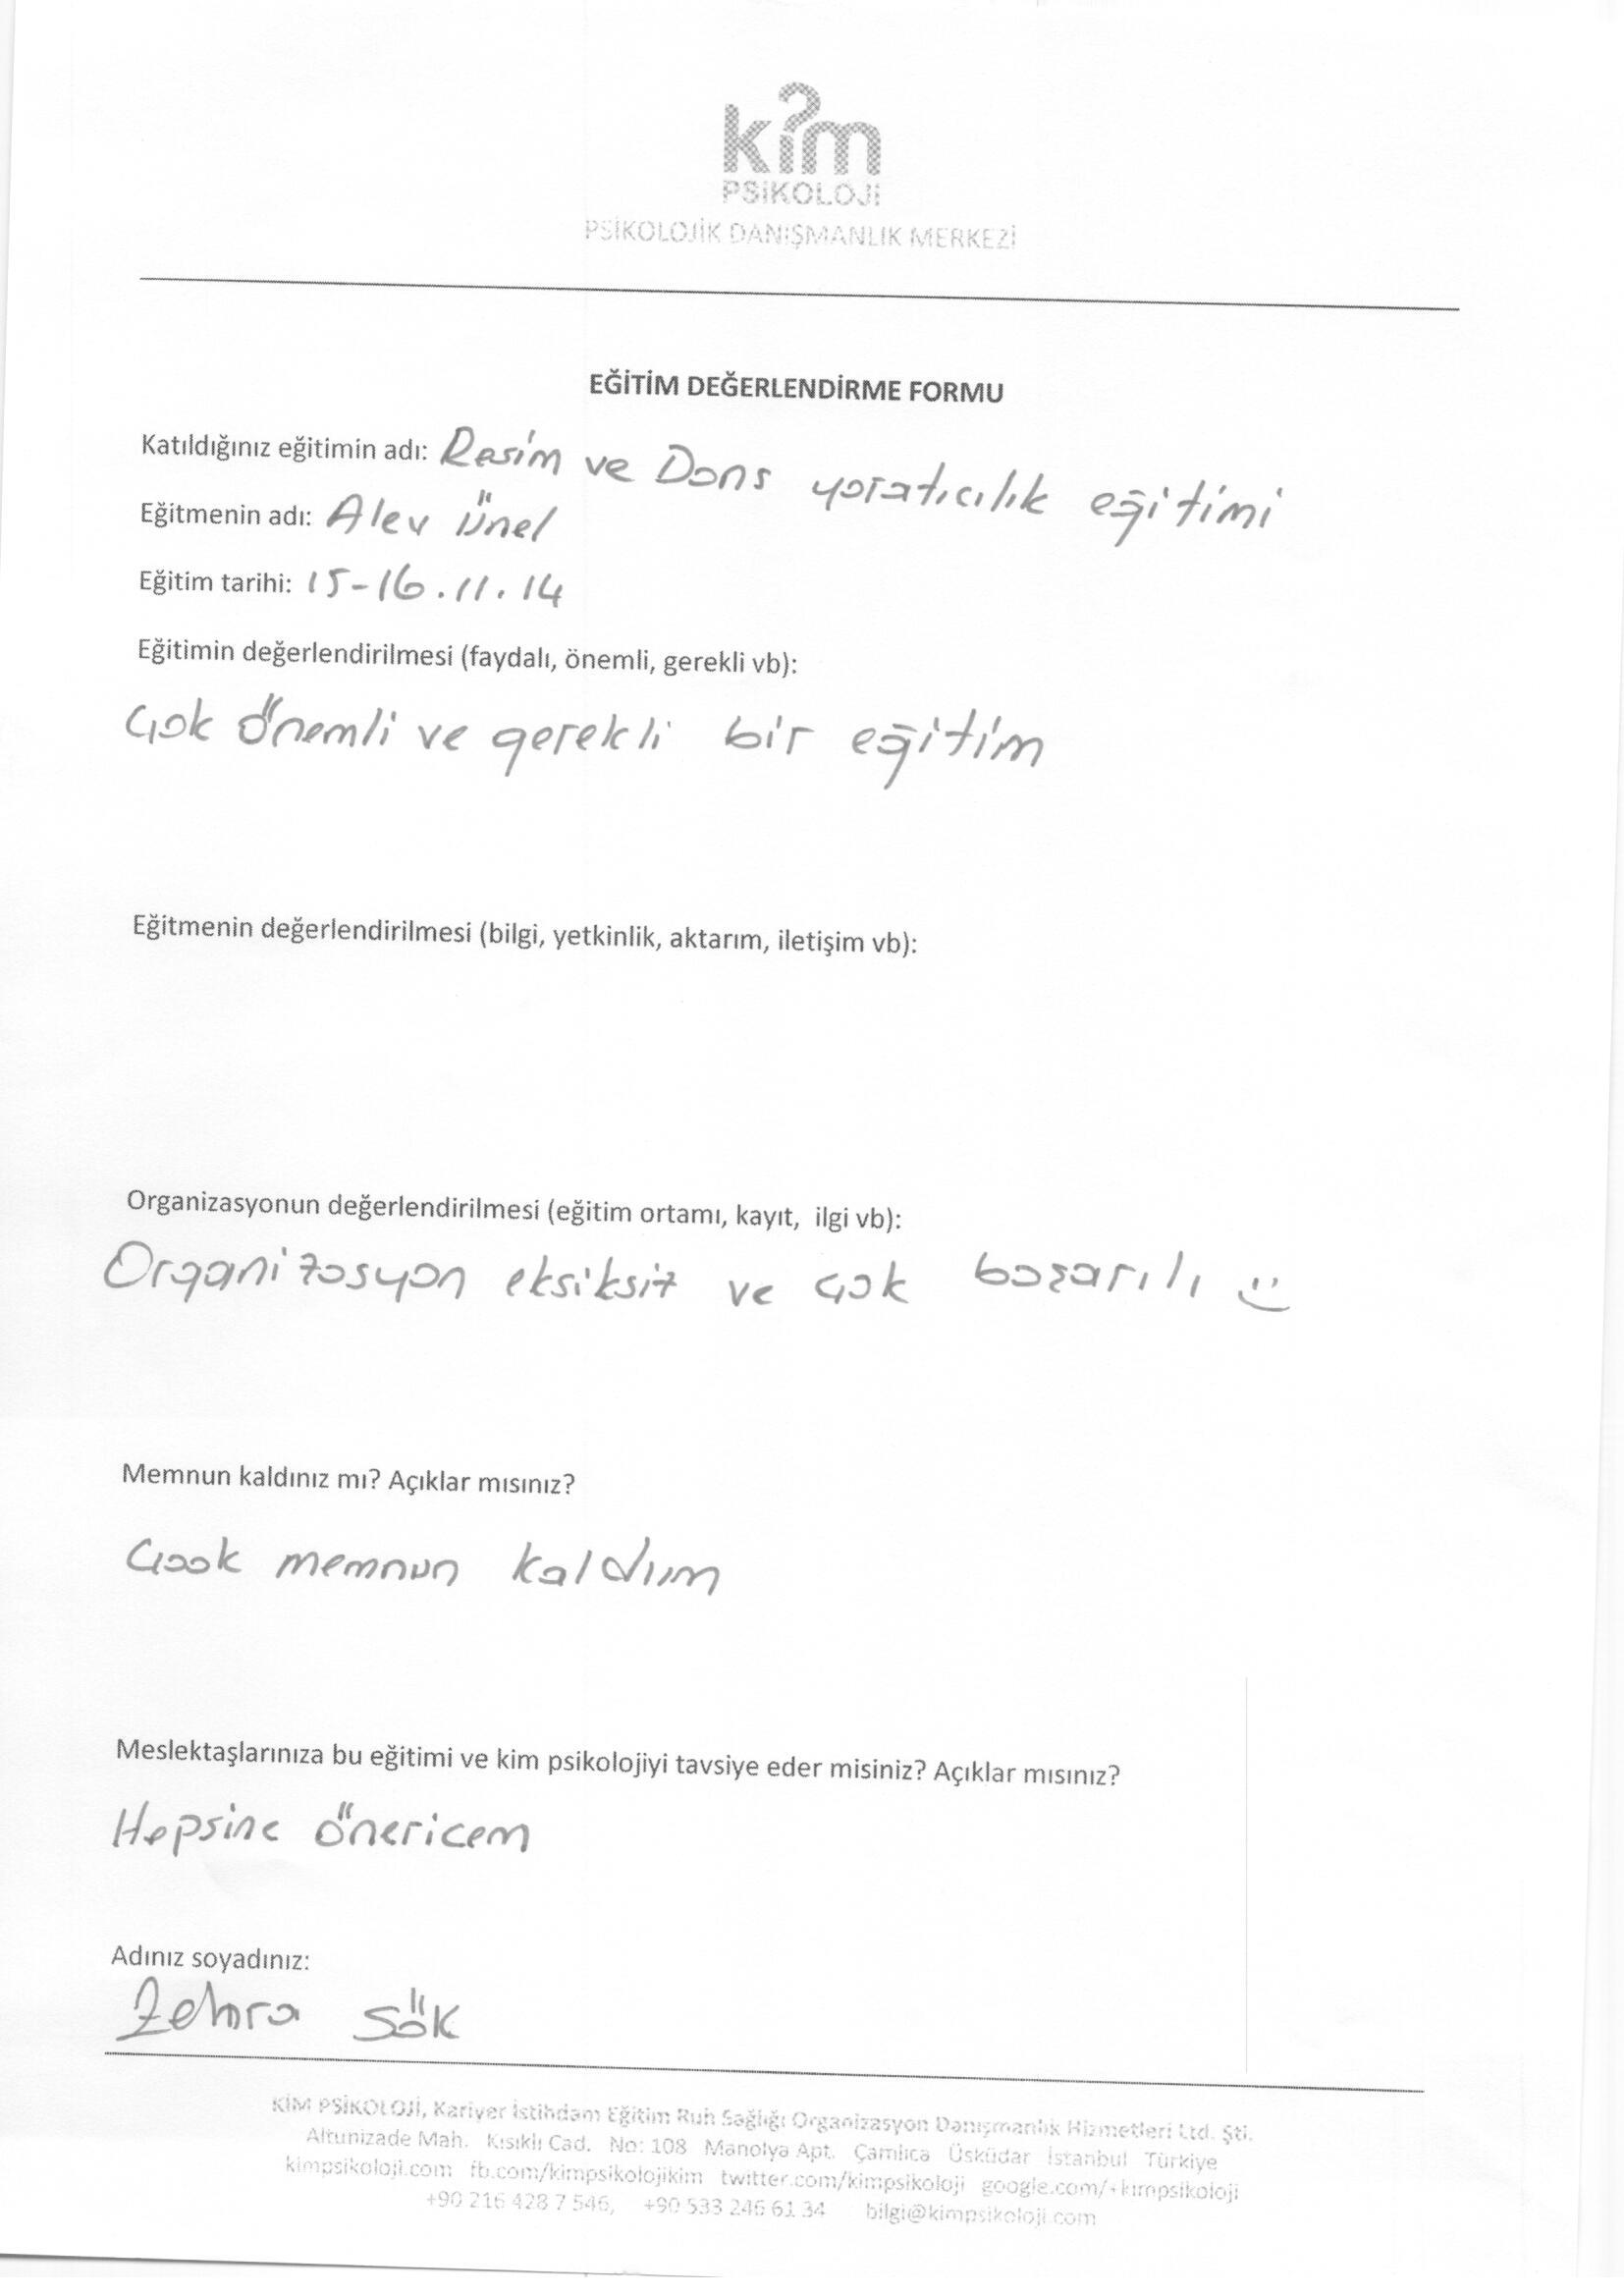 kim
PSİKOLOJİ
PSİKOLOJİK DANIŞMANLIK MERKEZİ
EĞİTİM DEĞERLENDİRME FORMU
Katıldığınız eğitimin adı: Resim ve Dans yaratıcılık eğitimi
Eğitmenin adı: Alev Ünel
Eğitim tarihi: 15-16.11.14
Eğitimin değerlendirilmesi (faydalı, önemli, gerekli vb):
Çok önemli ve gerekli bir eğitim
Eğitmenin değerlendirilmesi (bilgi, yetkinlik, aktarım, iletişim vb):
Organizasyonun değerlendirilmesi (eğitim ortamı, kayıt, ilgi vb):
Organizasyon eksiksiz ve çok başarılı :)
Memnun kaldınız mı? Açıklar mısınız?
Çook memnun kaldım
Meslektaşlarınıza bu eğitimi ve kim psikolojiyi tavsiye eder misiniz? Açıklar mısınız?
Hepsine önericem
Adınız soyadınız:
Zehra Sök
KİM PSİKOLOJİ, Kariyer İstihdam Eğitim Ruh Sağlığı Organizasyon Danışmanlık Hizmetleri Ltd. Şti.
Altunizade Mah. Kısıklı Cad. No: 108 Manolya Apt. Çamlıca Üsküdar İstanbul Türkiye
kimpsikoloji.com fb.com/kimpsikolojikim twitter.com/kimpsikoloji google.com/+kimpsikoloji
+90 216 428 7 546, +90 533 246 61 34 bilgi@kimpsikoloji.com